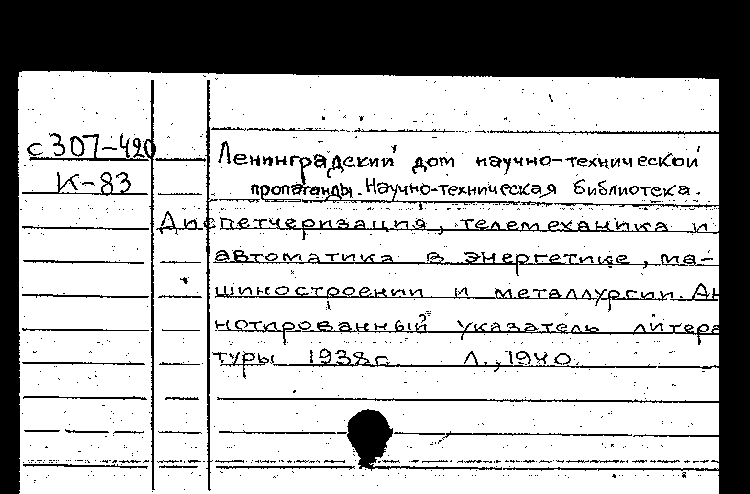 с307-420
К-83
Ленинградский дом научно-технической
пропаганды. Научно-техническая библиотека.
Диспетчеризация, телемеханика и
автоматика в энергетике, ма-
шиностроении и металлургии. Ан
нотированный указатель литера
туры 1938г. Л., 1940.